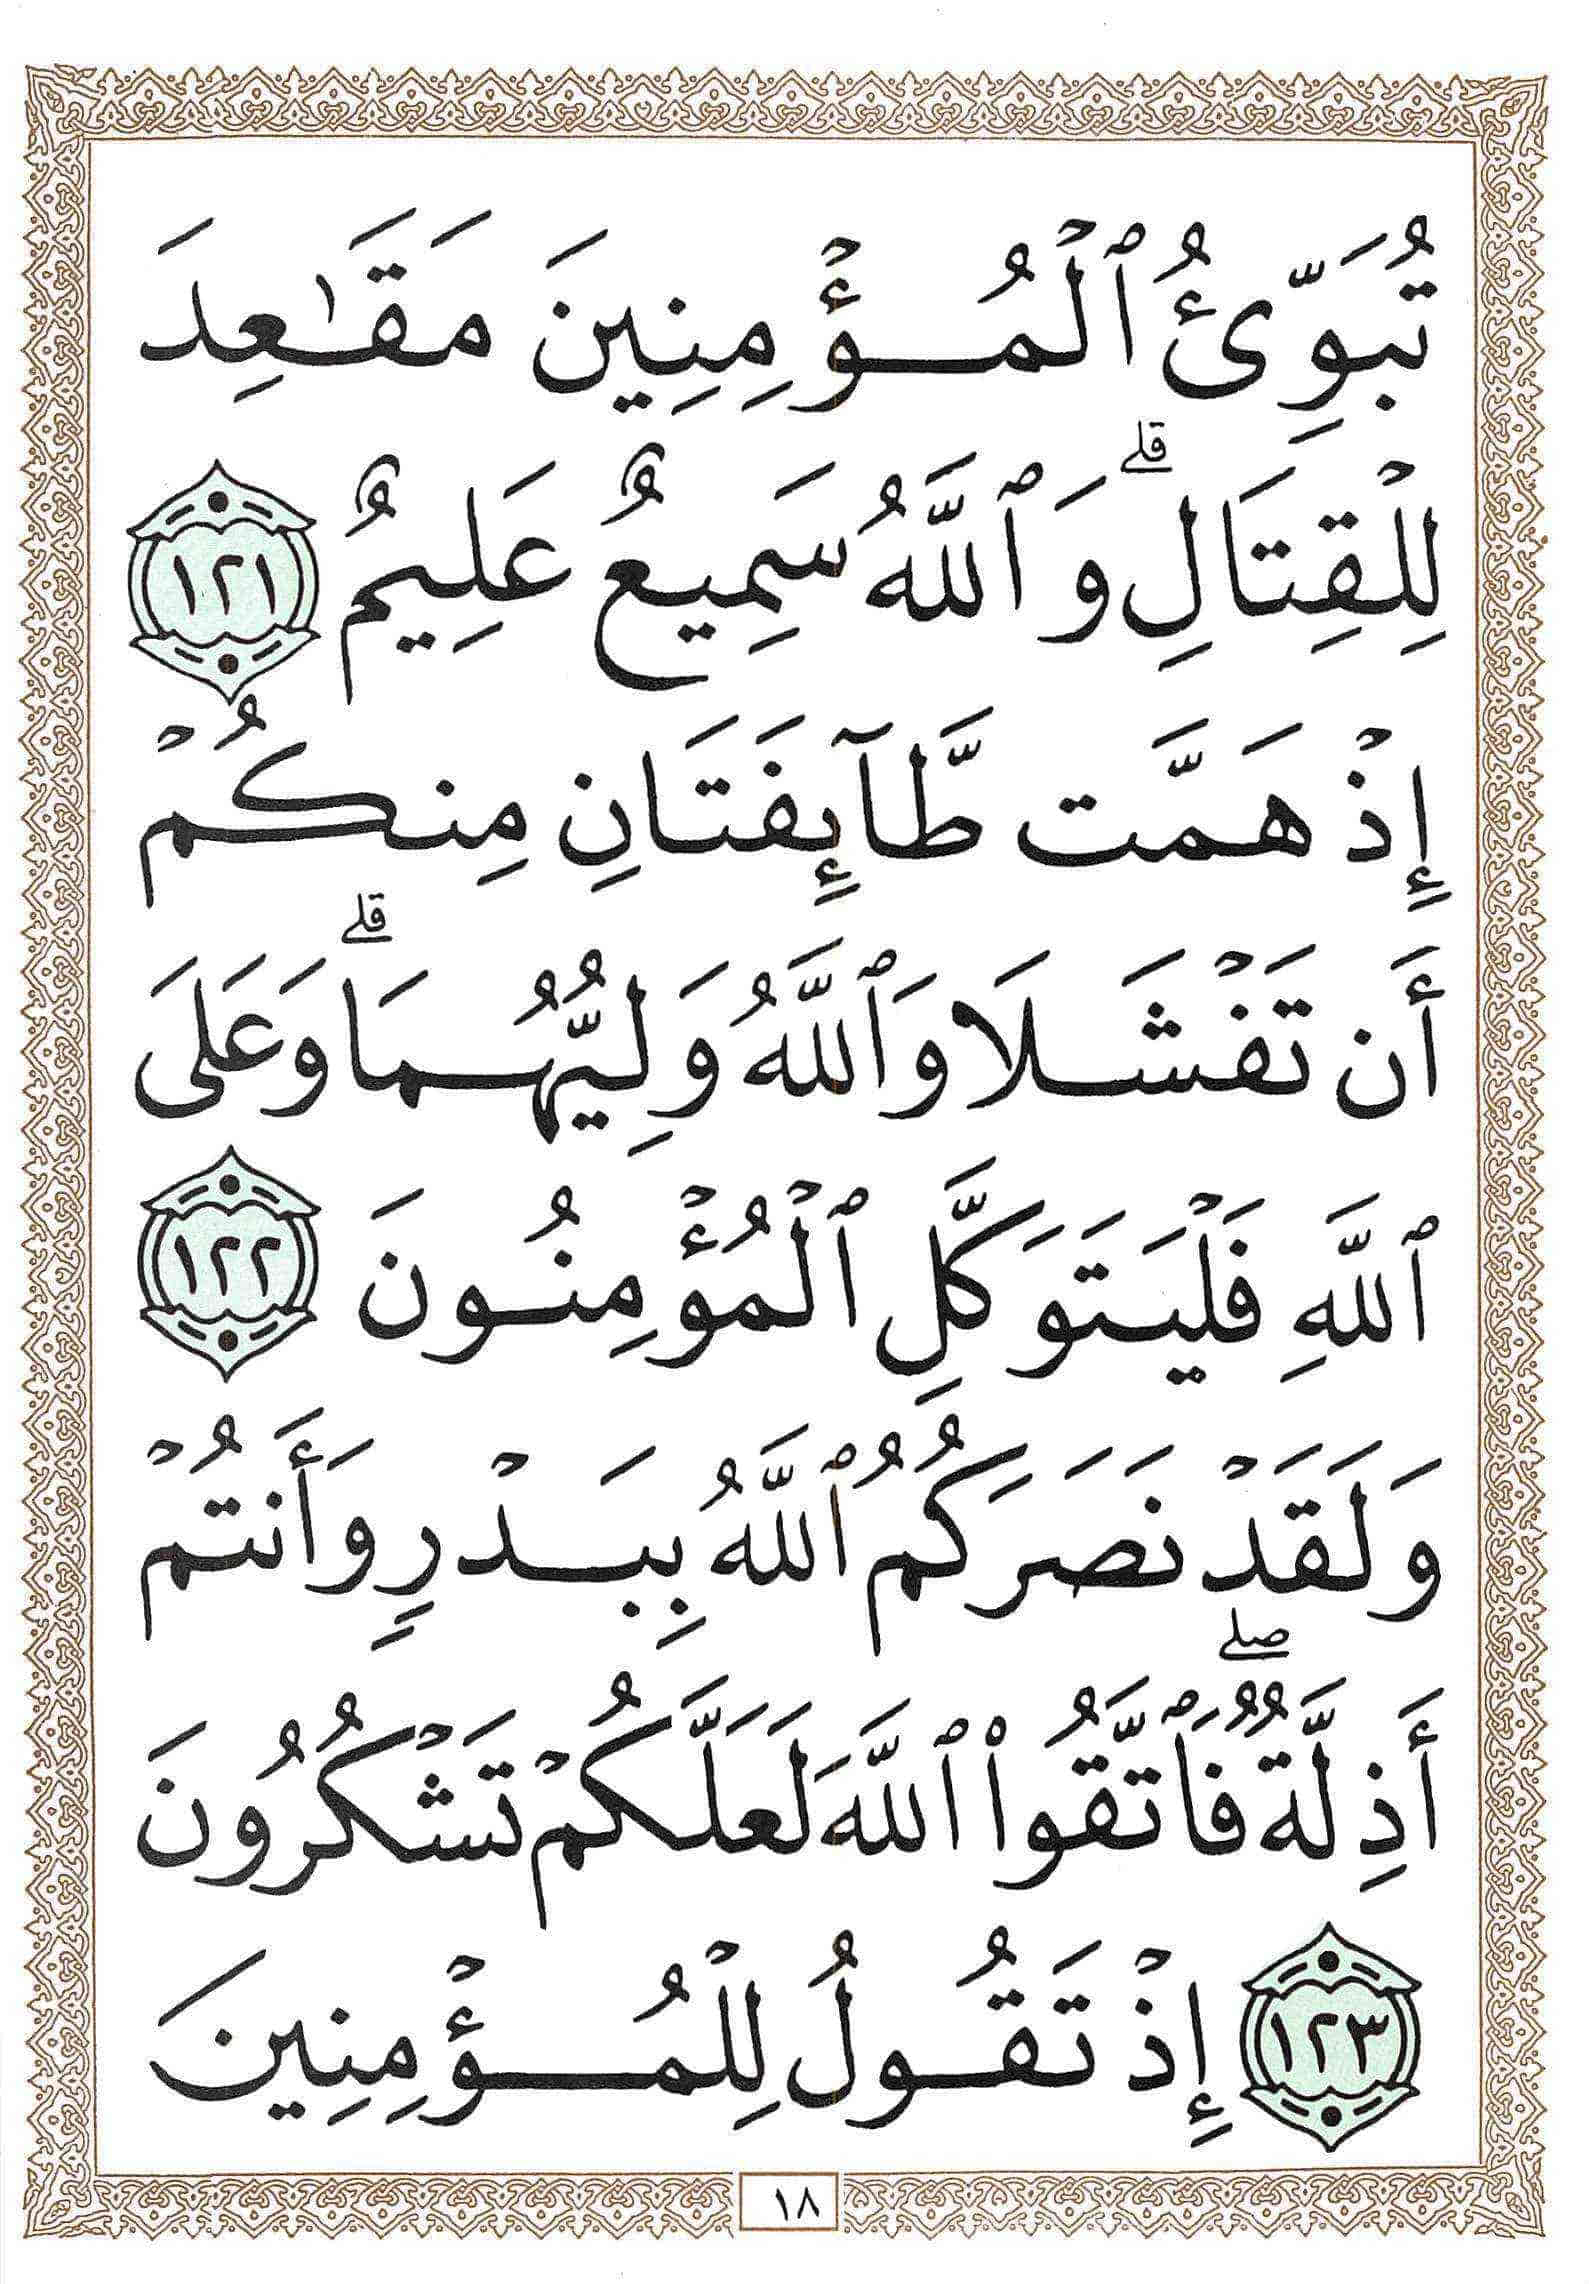 تُبَوِّئُ ٱلْمُؤْمِنِينَ مَقَٰعِدَ
لِلْقِتَالِ ۗ وَٱللَّهُ سَمِيعٌ عَلِيمٌ ١٢١
إِذْ هَمَّت طَّآئِفَتَانِ مِنكُمْ
أَن تَفْشَلَا وَٱللَّهُ وَلِيُّهُمَا ۗ وَعَلَى
ٱللَّهِ فَلْيَتَوَكَّلِ ٱلْمُؤْمِنُونَ ١٢٢
وَلَقَدْ نَصَرَكُمُ ٱللَّهُ بِبَدْرٍ وَأَنتُمْ
أَذِلَّةٌ ۖ فَٱتَّقُوا۟ ٱللَّهَ لَعَلَّكُمْ تَشْكُرُونَ
١٢٣ إِذْ تَقُولُ لِلْمُؤْمِنِينَ
١٨